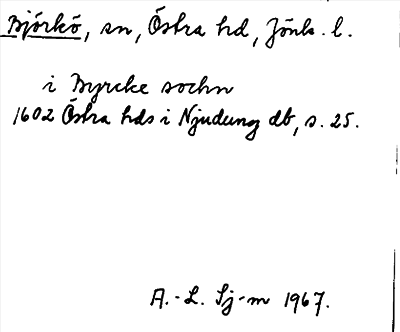 Björkö, sn, Östra hd, Jönk. l.
i Byrcke sochn
1602 Östra hds i Njudung db, s. 25.
A.-L. Sj-m 1967.